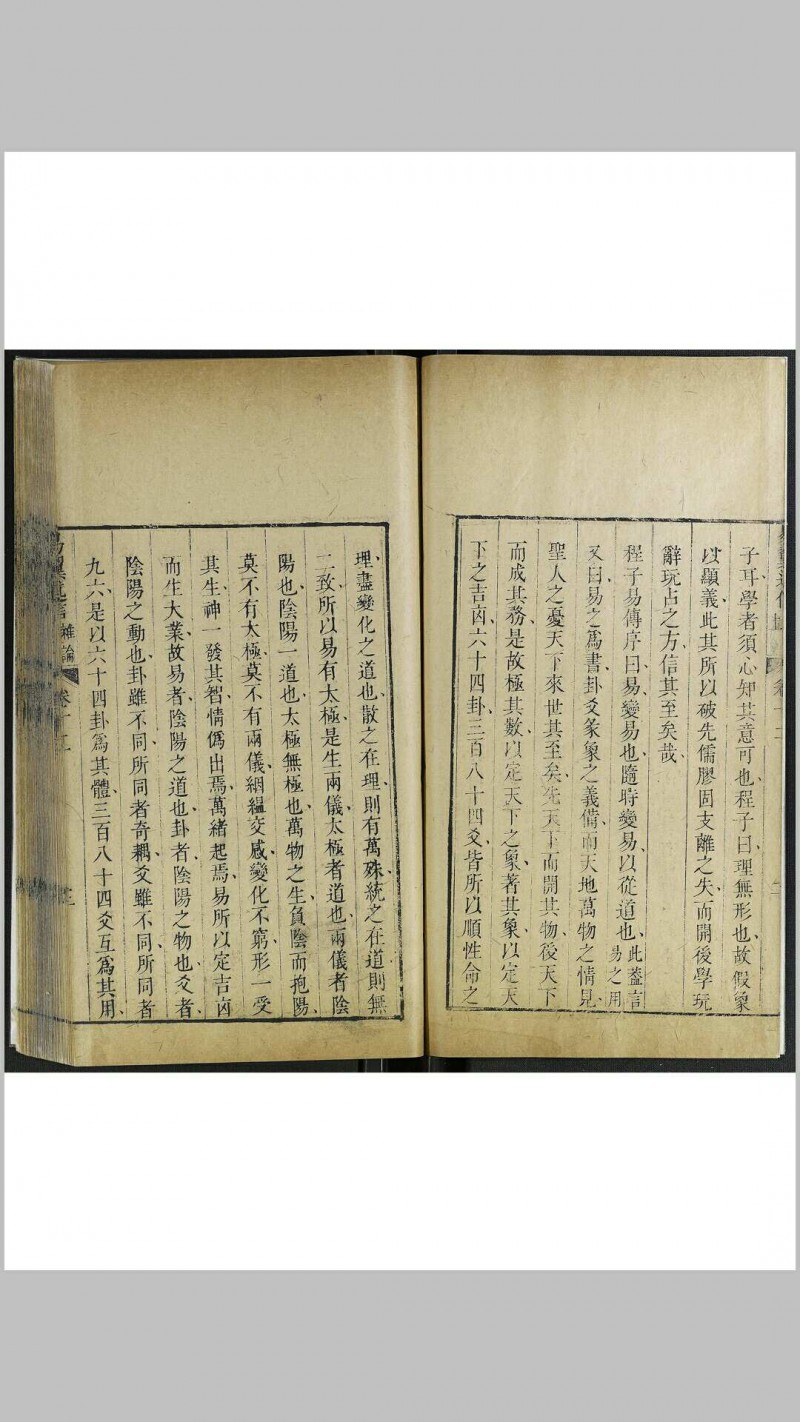 子耳、學者須心知其意可也、程子曰、理無形也、故假象
以顯義、此其所以破先儒膠固支離之失、而開後學玩
辭玩占之方、信其至矣哉、
程子易傳序曰、易、變易也、隨時變易、以從道也、此蓋言易之用
又曰、易之爲書、卦爻彖象之義備、而天地萬物之情見、
聖人之憂天下來世其至矣、先天下而開其物、後天下
而成其務、是故極其數、以定天下之象、著其象、以定天
下之吉凶、六十四卦、三百八十四爻、皆所以順性命之
理、盡變化之道也、散之在理、則有萬殊、統之在道、則無
二致、所以易有太極、是生兩儀、太極者道也、兩儀者陰
陽也、陰陽一道也、太極無極也、萬物之生、負陰而抱陽、
莫不有太極、莫不有兩儀、絪縕交感、變化不窮、形一受
其生、神一發其智、情僞出焉、萬緒起焉、易所以定吉凶
而生大業、故易者、陰陽之道也、卦者、陰陽之物也、爻者、
陰陽之動也、卦雖不同、所同者奇耦、爻雖不同、所同者
九六、是以六十四卦爲其體、三百八十四爻互爲其用、
雜論 卷十二